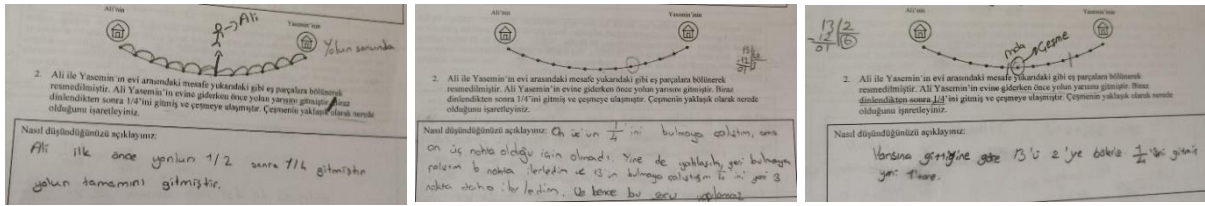 Ali'nin
Ali
Yasemin'nin
Yolun sonunda
2. Ali ile Yasemin'in evi arasındaki mesafe yukarıdaki gibi eş parçalara bölünerek
resmedilmiştir. Ali Yasemin'in evine giderken önce yolun yarısını gitmiştir. Biraz
dinlendikten sonra 1/4'ini gitmiş ve çeşmeye ulaşmıştır. Çeşmenin yaklaşık olarak nerede
olduğunu işaretleyiniz.
Nasıl düşündüğünüzü açıklayınız:
Ali ilk önce yonlun 1/2 sonra 1/4 gitmiştir
yolun tamamını gitmiştir.
Ali'nin
Yasemin'nin
2. Ali ile Yasemin'in evi arasındaki mesafe yukarıdaki gibi eş parçalara bölünerek
resmedilmiştir. Ali Yasemin'in evine giderken önce yolun yarısını gitmiştir. Biraz
dinlendikten sonra 1/4'ini gitmiş ve çeşmeye ulaşmıştır. Çeşmenin yaklaşık olarak nerede
olduğunu işaretleyiniz.
Nasıl düşündüğünüzü açıklayınız: On üç'ün 1/4 'ini bulmaya çalıştım, ama
on üç nokta olduğu için olmadı. Yine de yaklaşık yeri bulmaya
çalıştım 6 nokta ilerledim ve 13'ün bulmaya çalıştım 1/4 ini yani 3
nokta daha ilerledim. Ve bence bu soru yapılamaz
13 2
-12 6
01
Ali'nin
Yasemin'nin
mola
Çeşme
2. Ali ile Yasemin'in evi arasındaki mesafe yukarıdaki gibi eş parçalara bölünerek
resmedilmiştir. Ali Yasemin'in evine giderken önce yolun yarısını gitmiştir. Biraz
dinlendikten sonra 1/4'ini gitmiş ve çeşmeye ulaşmıştır. Çeşmenin yaklaşık olarak nerede
olduğunu işaretleyiniz.
Nasıl düşündüğünüzü açıklayınız:
Yarısına gittiğine göre 13'ü 2'ye böleriz. 1/4
yani 1 tane.